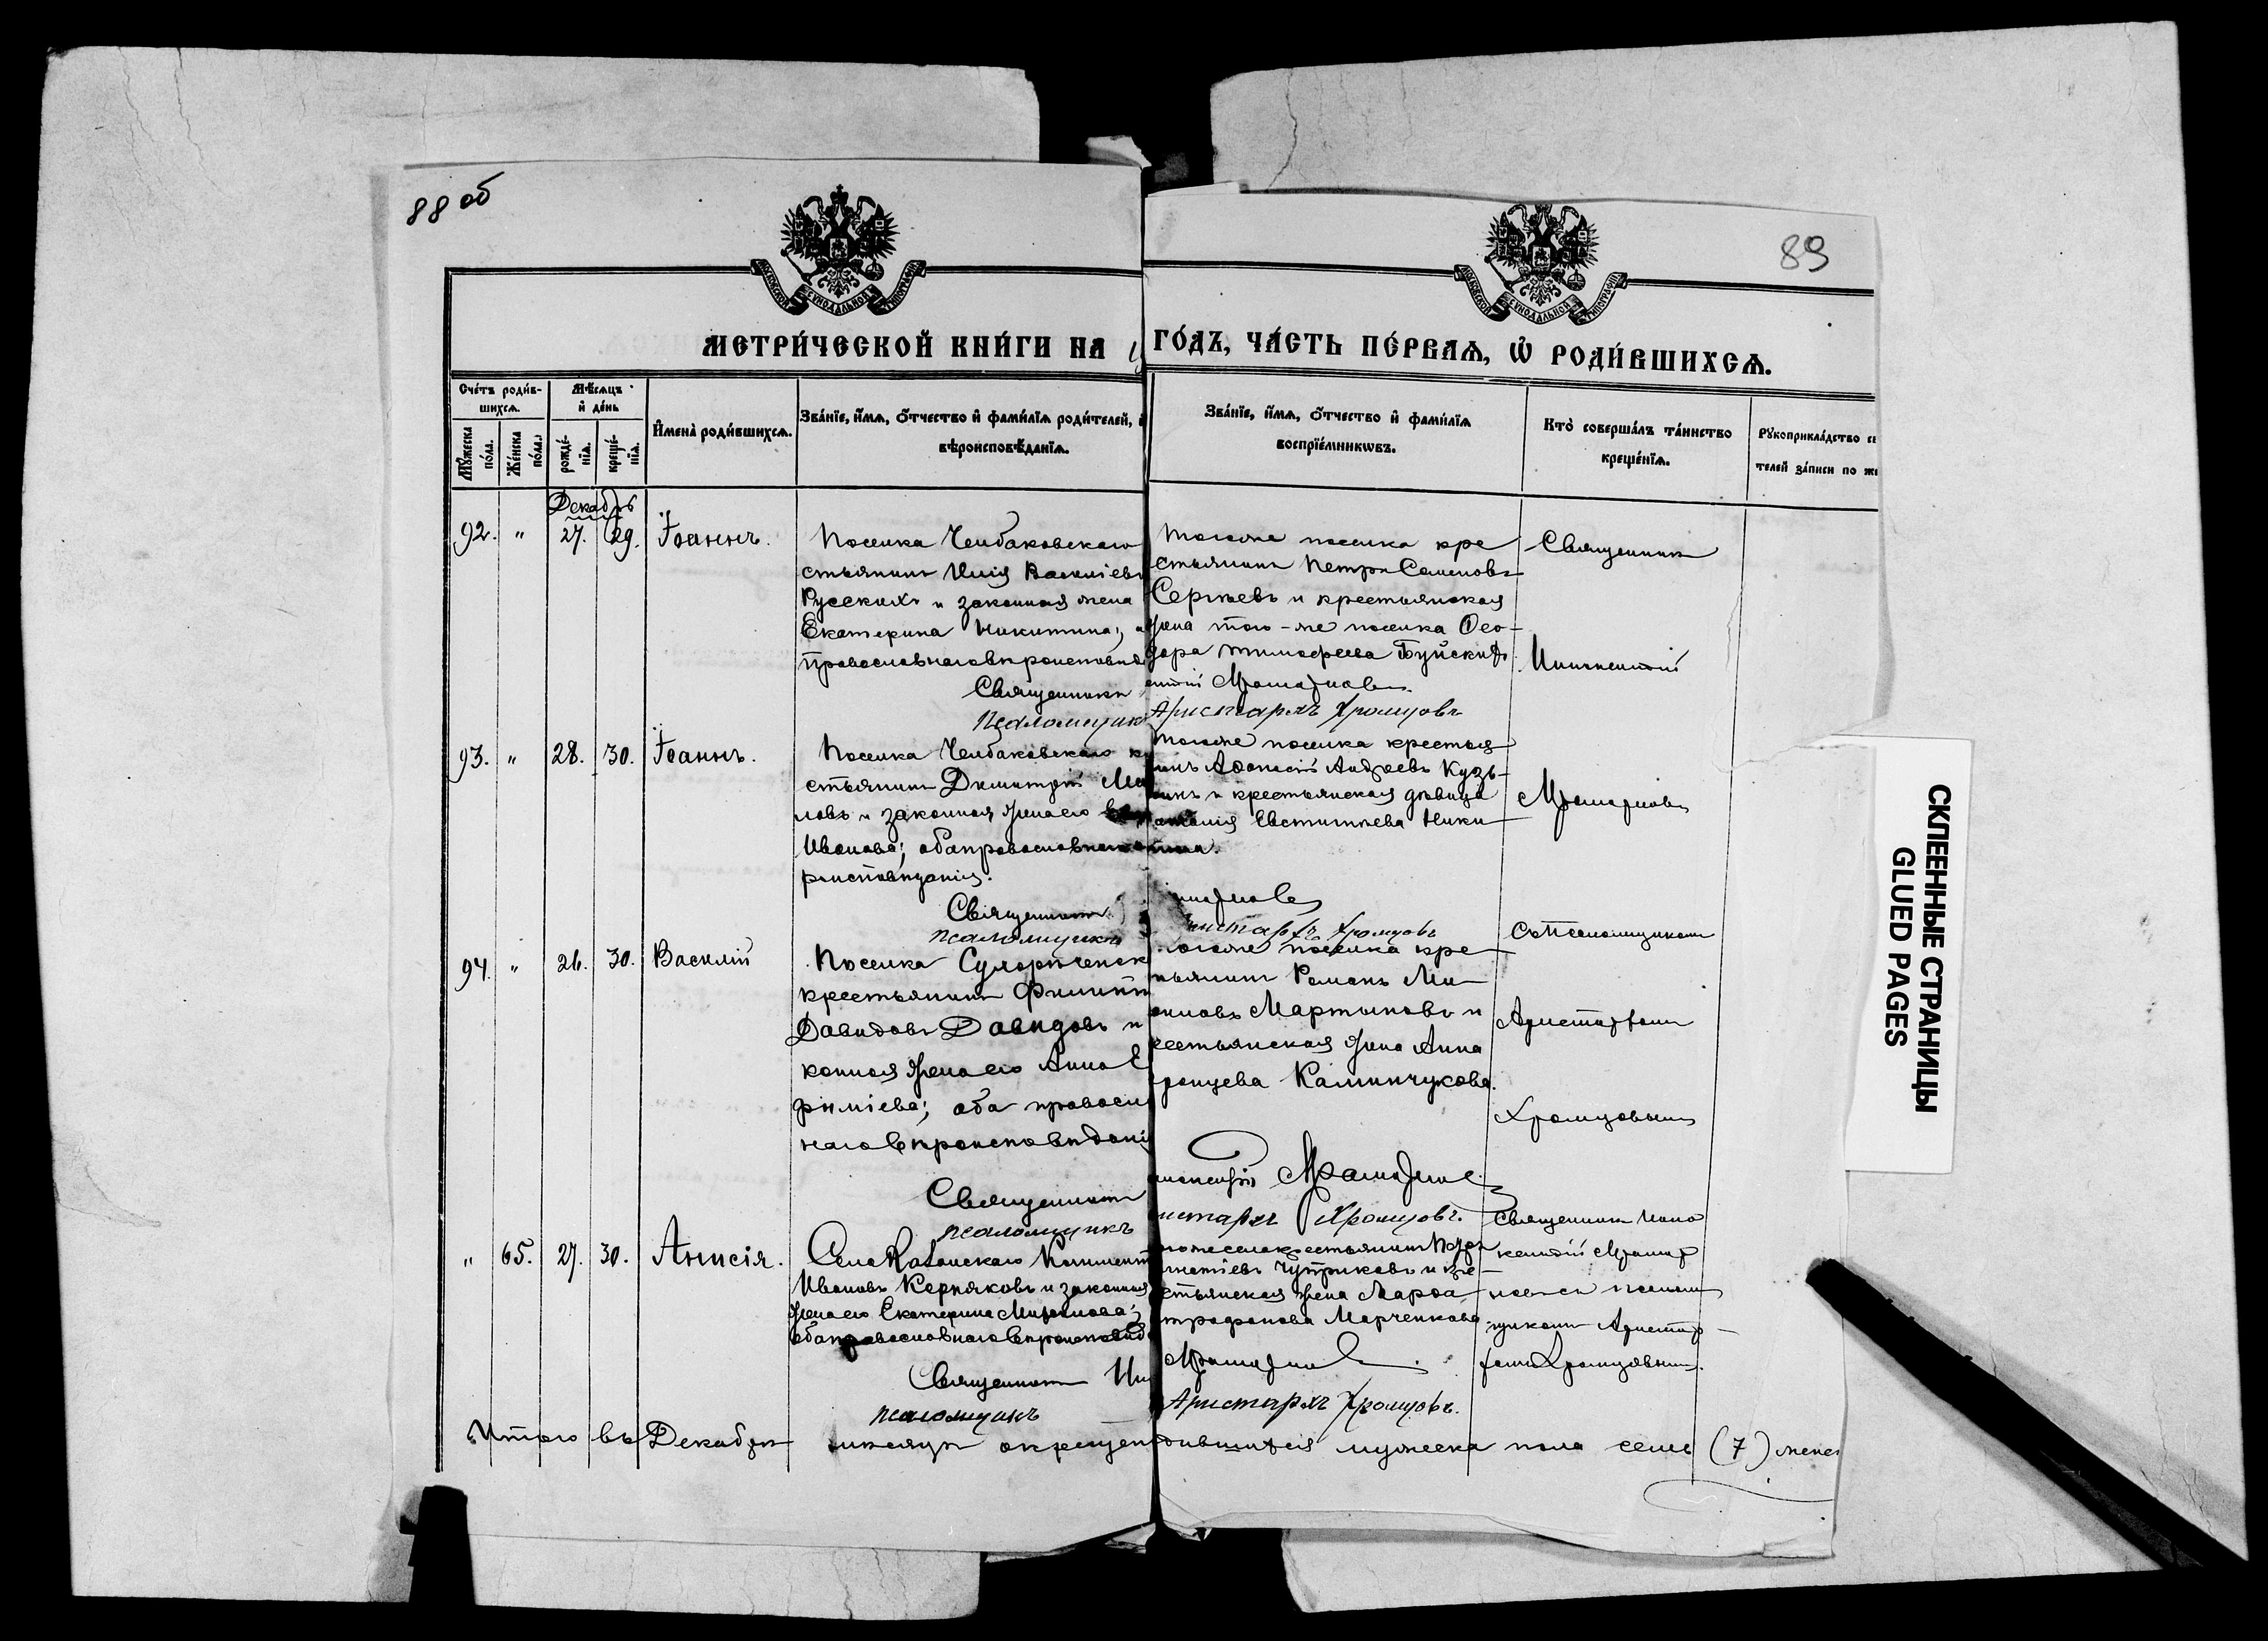 88 об
89
МОСКОВСКОЙ СѴНОДАЛЬНОЙ ТИПОГРАФІИ
МОСКОВСКОЙ СѴНОДАЛЬНОЙ ТИПОГРАФІИ
МЕТРИ́ЧЕСКОЙ КНИ́ГИ НА
ГО́ДЪ, ЧА́СТЬ ПЕ́РВАѦ, Ѡ҆ РОДИ́ВШИХСѦ.
Сче́тъ роди́в-
шихсѧ.
Мꙋ́жеска по́ла.
Же́нска по́ла.
Мѣ́сѧцъ
и҆ де́нь
рожде́-
нїѧ.
креще́-
нїѧ.
И҆мена̀ роди́вшихсѧ.
Зва́нїе, и҆́мѧ, ѻ҆́тчество и҆ фами́лїѧ роди́телей, и҆
вѣроисповѣ́данїѧ.
Зва́нїе, и҆́мѧ, ѻ҆́тчество и҆ фами́лїѧ
воспрїе́мникѡвъ.
Кто̀ соверша́лъ та́инство
креще́нїѧ.
Рꙋкоприкла́дство
телей за́писи по
Декабрь
92. " 27. 29. Іоаннъ.
Поселка Челбаковскаго
стьянинъ Илія Васильевъ
Русскихъ и законная жена
Екатерина Никитина;
православнаго вѣроисповѣд
Священникъ
Псаломщикъ
Тогоже поселка кре
стьянинъ Петръ Семеновъ
Сергѣевъ и крестьянская
жена того-же поселка Ѳео-
дора Тимофеева Буйскихъ
Аристархъ Хромцовъ
Священникъ
Иннокентій
93. " 28. 30. Іоаннъ.
Поселка Челбаковскаго
стьянинъ Димитрій
ловъ и законная жена его
Иванова; оба православнаго
роисповѣданія.
Священникъ
псаломщикъ
Тогоже поселка крестья
нинъ Аѳанасій Андреевъ Кузь-
минъ и крестьянская дѣвица
Евстигнѣева Ники
тина.
Аристархъ Хромцовъ
94. " 26. 30. Василій
Поселка
крестьянинъ Филиппъ
Давидовъ Давидовъ и
конная жена его Анна Е
фиміева; оба правосл
наго вѣроисповѣданія
Священникъ
псаломщикъ
тогоже поселка кре
тьянинъ Романъ Ми
Мартыновъ и
рестьянская жена Анна
Калинчукова.
истархъ Хромцовъ.
Съ Псаломщикомъ
Аристархомъ
Хромцовымъ
" 65. 27. 30. Анисія.
Села Казанскаго Климентъ
Ивановъ Керняковъ и законная
жена его Екатерина
оба православнаго вѣроисповѣд
Священникъ Ин
псаломщикъ
тогоже села крестьянинъ
Чуприковъ и кре-
стьянская жена Марѳа
трофанова Марченкова
Аристархъ Хромцовъ.
Священникъ Инно
кентій
щикомъ Аристар-
хомъ Хромцовымъ.
Итого въ Декабрѣ мѣсяцѣ окрещен дившихся мужеска пола семь (7) женс
СКЛЕЕННЫЕ СТРАНИЦЫ
GLUED PAGES